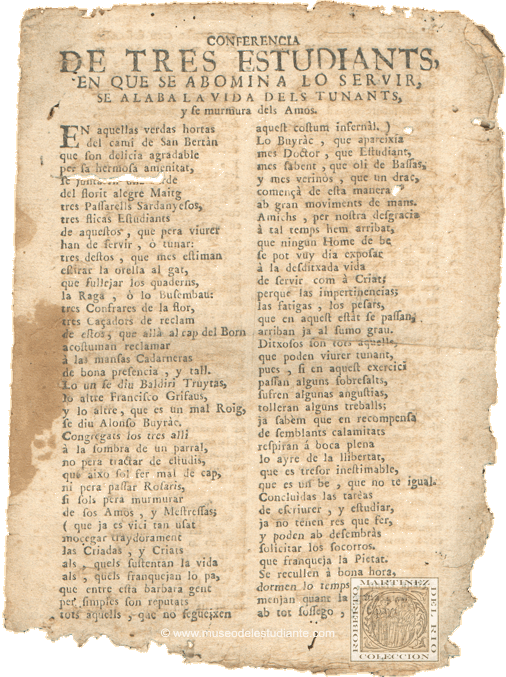 CONFERENCIA
DE TRES ESTUDIANTS,
EN QUE SE ABOMINA LO SERVIR,
SE ALABA LA VIDA DELS TUNANTS,
y se murmura dels Amos.
EN aquellas verdas hortas
del camí de San Bertàn
que son delicia agradable
per sa hermosa amenitat,
se juntaren una tarde
del florit alegre Maitg
tres Passarells Sardanyesos,
tres sticas Estudiants
de aquestos, que pera viurer
han de servir, ò tunar:
tres destos, que mes estiman
estirar la orella al gat,
que fullejar los quaderns,
la Raga, ò lo Busembau:
tres Confrares de la flor,
tres Caçadors de reclam
de estos, que allà al cap del Born
acostuman reclamar
à las mansas Cadarneras
de bona presencia, y tall.
Lo un se diu Baldiri Truytas,
lo altre Francisco Grifaus,
y lo altre, que es un mal Roig,
se diu Alonso Buyràc.
Congregats los tres allí
à la sombra de un parral,
no pera tractar de estudis,
que aixo sol fer mal de cap,
ni pera passar Rosaris,
si sols pera murmurar
de sos Amos, y Mestressas;
( que ja es vici tan usat
mocegar traydorament
las Criadas, y Criats
als, quels sustentan la vida
als, quels franquejan lo pa,
que entre esta barbara gent
per simples son reputats
tots aquells, que no segueixen
aquest costum infernàl. )
Lo Buyràc, que apareixia
mes Doctor, que Estudiant,
mes saberut, que oli de Bassas,
y mes verinòs, que un drac,
començà de esta manera
ab gran moviments de mans.
Amichs, per nostra desgracia
à tal temps hem arribat,
que ningun Home de be
se pot vuy dia exposar
à la desditxada vida
de servir com à Criat;
perque las impertinencias,
las fatigas, los pesars,
que en aquest estat se passan,
arriban ja al sumo grau.
Ditxosos son tots aquells,
que poden viurer tunant,
pues, si en aquest exercici
passan alguns sobresalts,
sufren algunas angustias,
tolleran alguns treballs;
ja sabem que en recompensa
de semblants calamitats
respiran à boca plena
lo ayre de la llibertat,
que es tresor inestimable,
que es un be, que no te igual.
Concluidas las tarèas
de escriurer, y estudiar,
ja no tenen res que fer,
y poden ab desembràs
solicitar los socorros.
que franqueja la Pietat.
Se recullen à bona hora,
dormen lo temps
menjan quant la
ab tot sossego,
ROBERTO MARTINEZ DEL RIO
COLECCION
© www.museodelestudiante.com